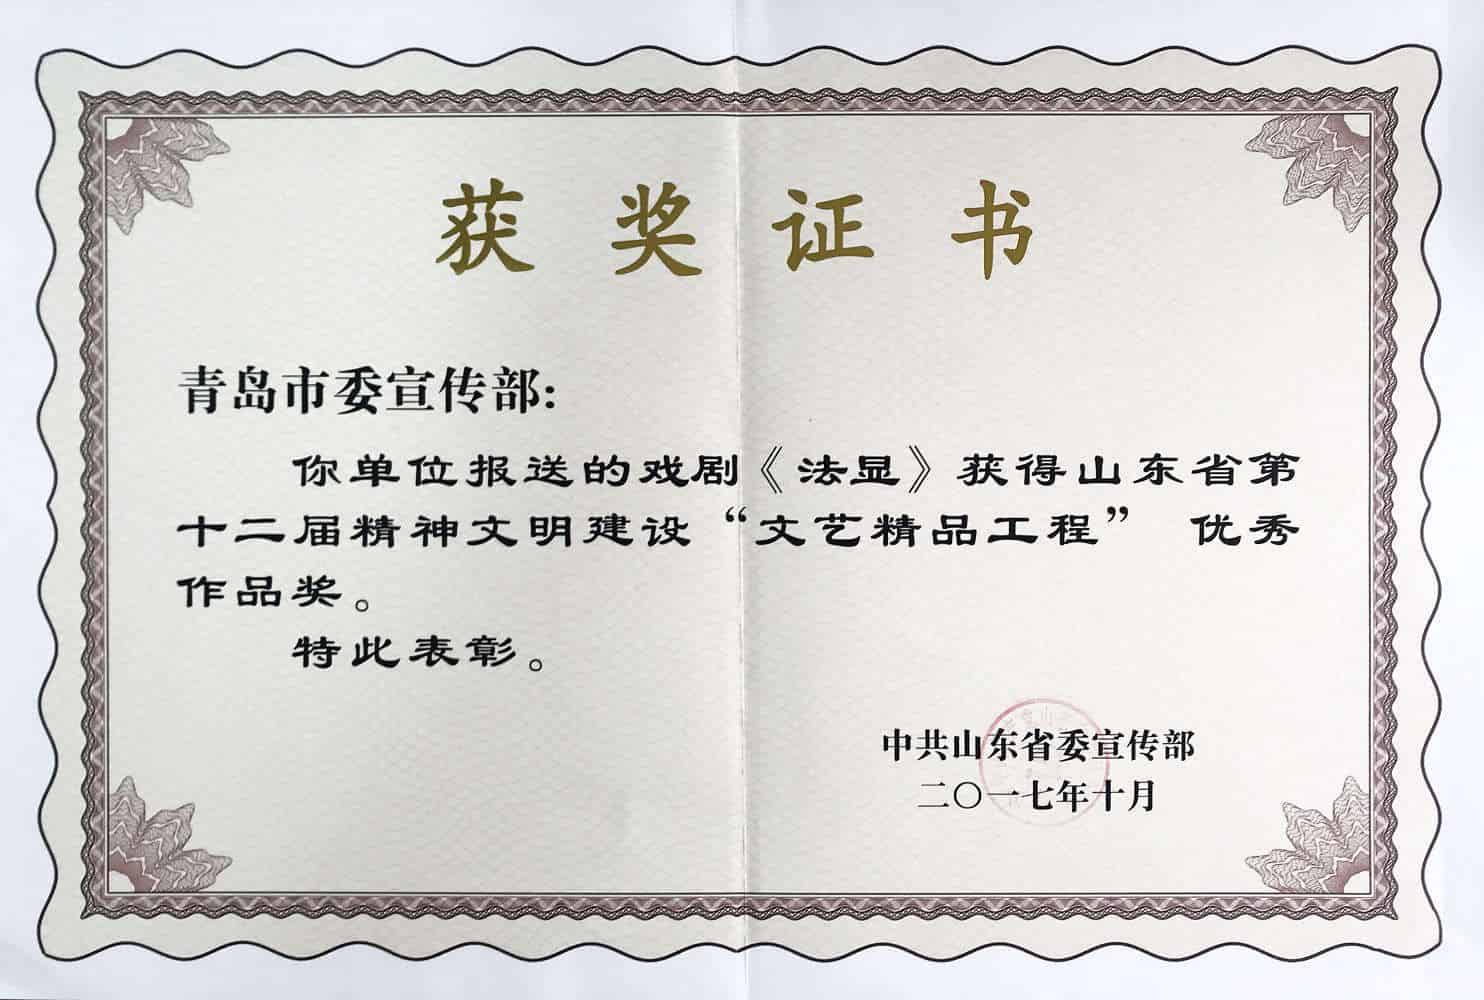 获奖证书
青岛市委宣传部:
你单位报送的戏剧《法显》获得山东省第
十二届精神文明建设“文艺精品工程” 优秀
作品奖。
特此表彰。
中共山东省委宣传部
二〇一七年十月